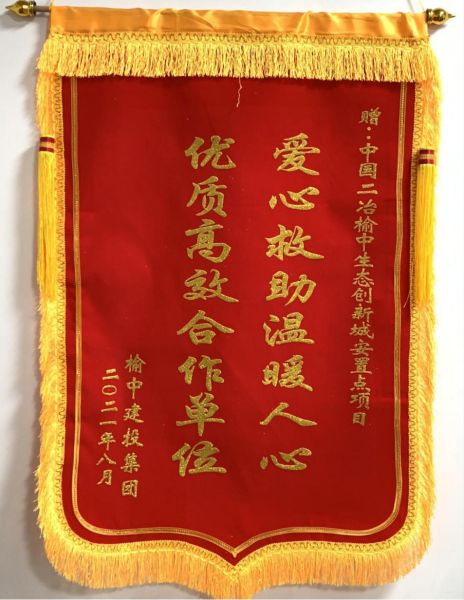 赠:中国二冶榆中生态创新城安置点项目
爱心救助温暖人心
优质高效合作单位
榆中建投集团
二〇二一年八月